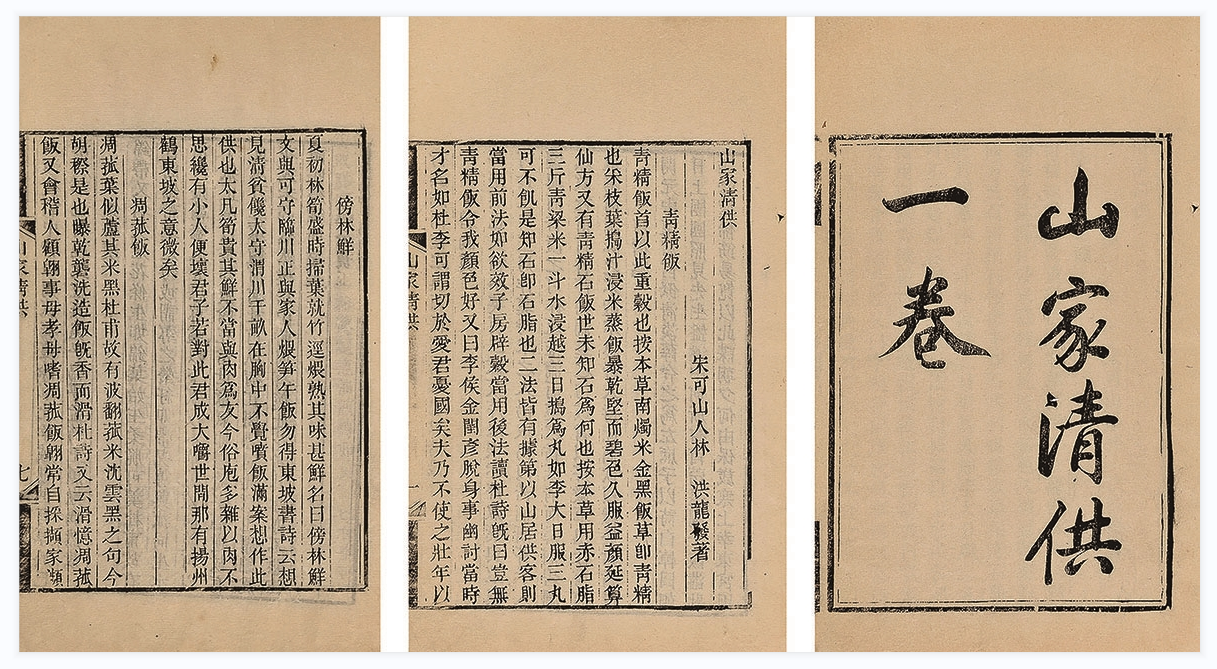 山家清供
一卷
山家清供
宋可山人林 洪龍發著
青精飯
青精飯首以此重穀也按本草南燭米金黑飯草卽青精
也采枝葉搗汁浸米蒸飯暴乾堅而碧色久服益顏延算
仙方又有青精石飯世未知石爲何也按本草用赤石脂
三斤青粱米一斗水浸越三日搗爲丸如李大日服三丸
可不飢是知石卽石脂也二法皆有據第以山居供客則
當用前法如欲效子房辟穀當用後法讀杜詩旣曰豈無
青精飯令我顏色好又曰李侯金閨彥脫身事幽討當時
才名如杜李可謂切於愛君憂國矣夫乃不使之壯年以
山家清供
一
傍林鮮
夏初林筍盛時掃葉就竹逕煨熟其味甚鮮名曰傍林鮮
文與可守臨川正與家人煨筍午飯勿得東坡書詩云想
見清貧饞太守渭川千畝在胸中不覺噴飯滿案想作此
供也大凡筍貴其鮮不當與肉爲友今俗庖多雜以肉不
思纔有小人便壞君子若對此君成大嚼世間那有揚州
鶴東坡之意微矣
凋菰飯
凋菰葉似蘆其米黑杜甫故有波翻菰米沈雲黑之句今
胡穄是也曝乾礱洗造飯旣香而滑杜詩又云滑憶凋菰
飯又會稽人顧翱事母孝母嗜凋菰飯翱常自採擷家瀕
山家清供
七